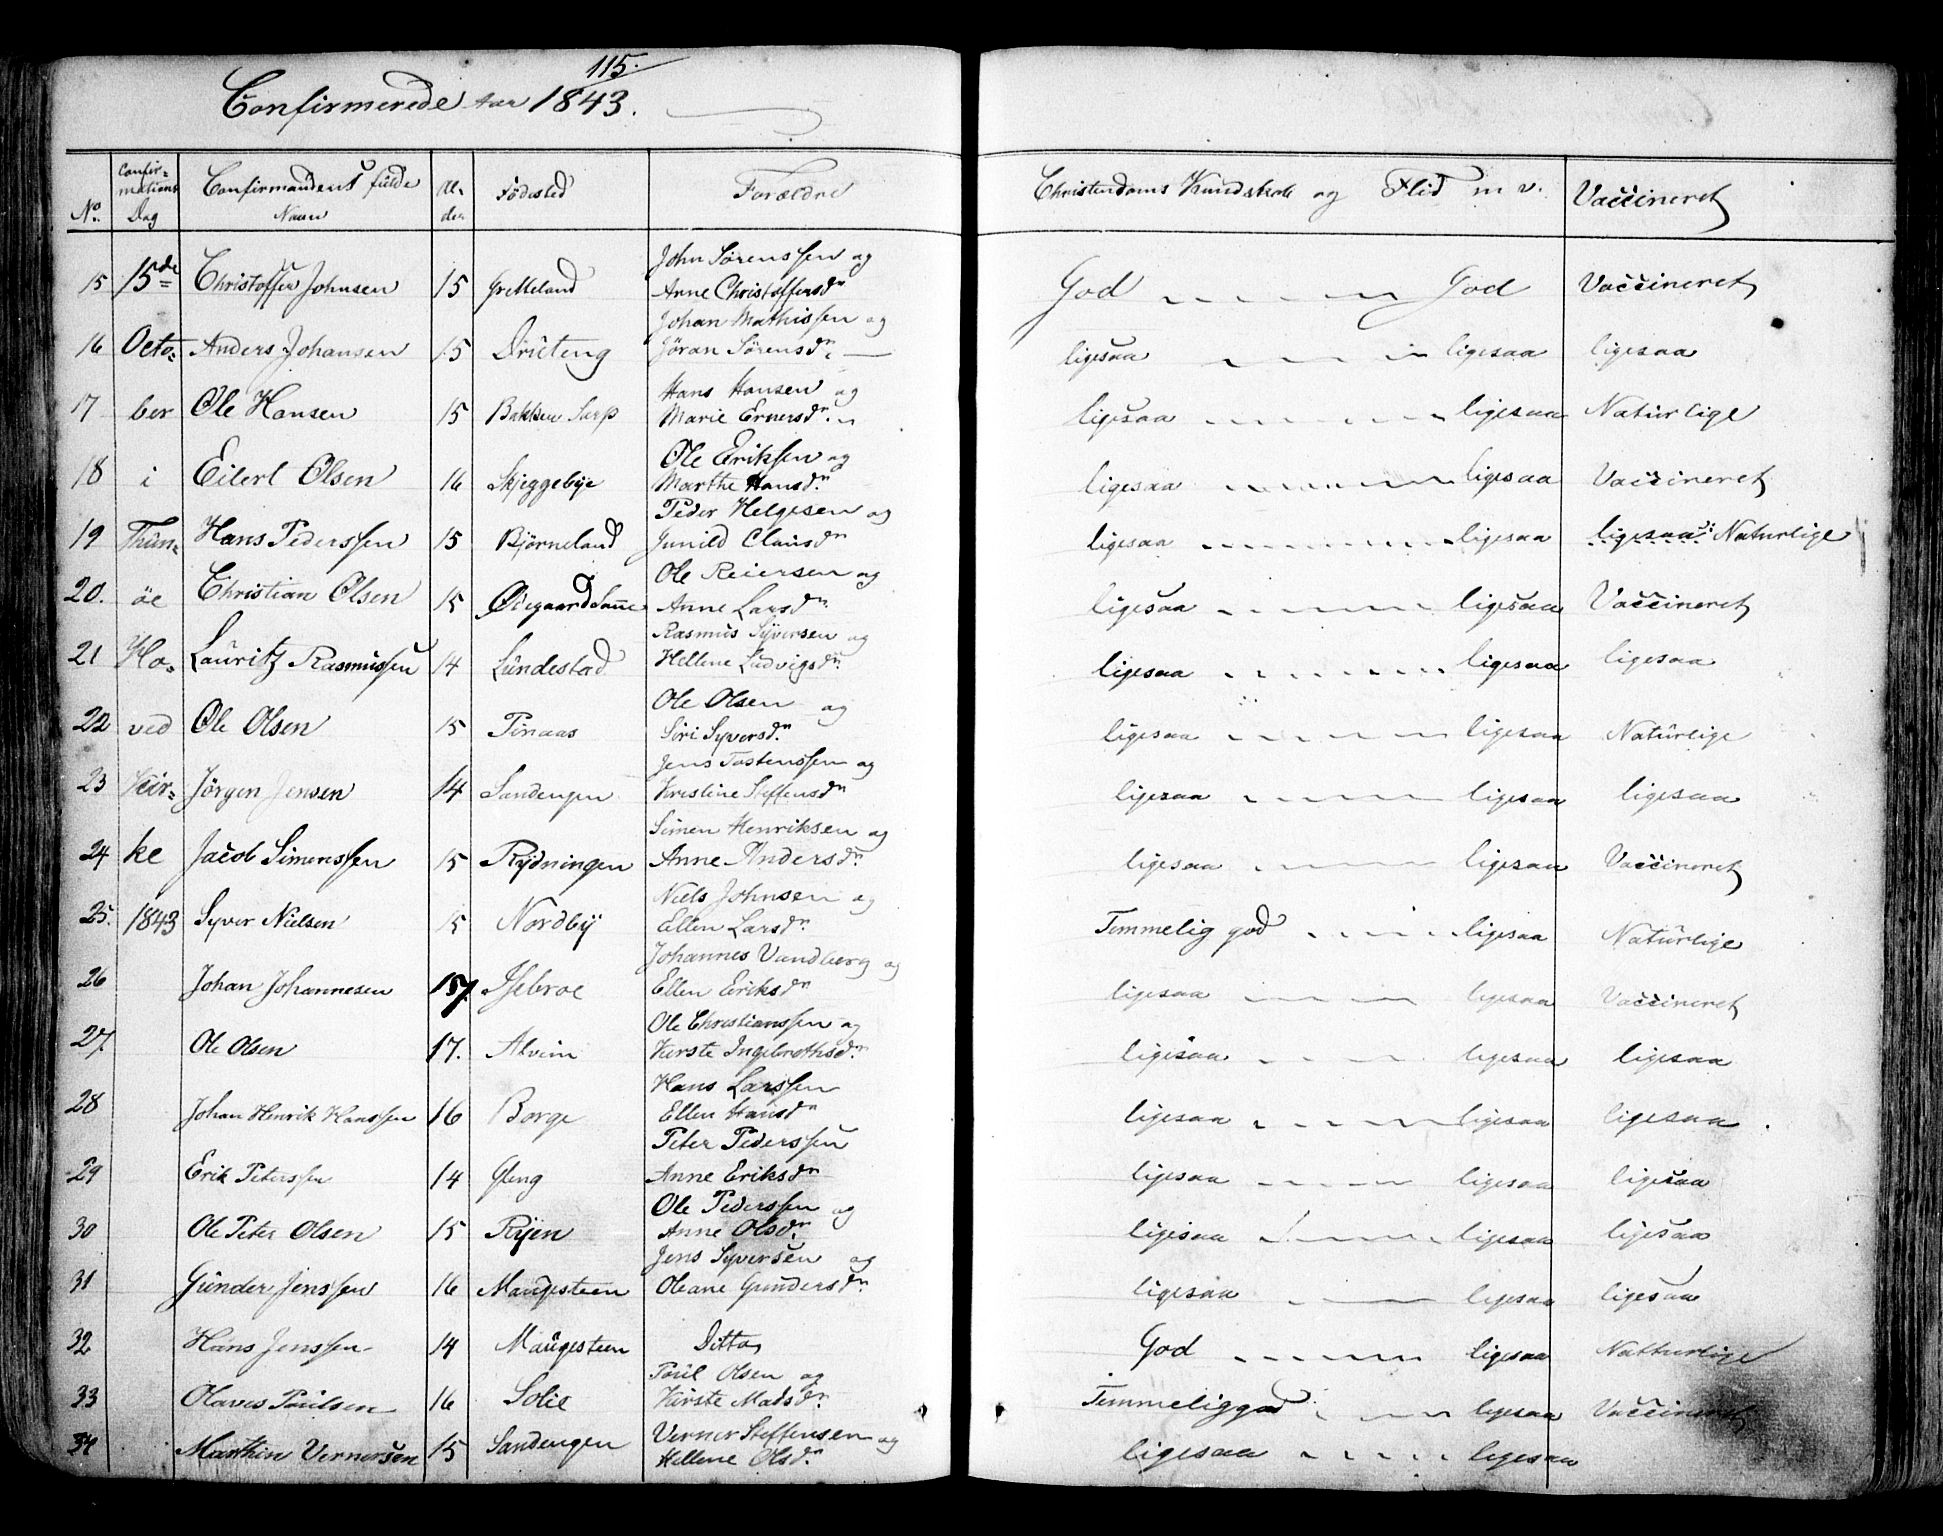 115.
Confirmerede Aar 1843.
No. Confirmations Dag Confirmandens fulde Navn Alder Födested Forældre Christendoms Kundskab og Flid m v. Vaccineret
John Sörenssen og
15 15de Christoffer Johnsen 15 Grelleland Anne Christoffersdr God God Vaccineret
Johan Mathissen og
16 Octo- Anders Johansen 15 Jöran Sörensdr. ligesaa ligesaa ligesaa
Hans Hansen og
17 ber Ole Hansen 15 Bakken Sarp Marie Ernersdr. ligesaa ligesaa Naturlige
Ole Eriksen og
18 i Eilert Olsen 16 Skjeggebye Marthe Hansdr. ligesaa ligesaa Vaccineret
Peder Helgesen og
19 Thun- Hans Pederssen 15 Björneland Gunild Clausdr ligesaa ligesaa ligesaa Naturlige
Ole Reiersen og
20. öe Christian Olsen 15 Ödegaard Anne Larsdr. ligesaa ligesaa Vaccineret
Rasmus Syversen og
21 Ho- Lauritz Rasmussen 14 Lundestad Hellene Ludvigsdr. ligesaa ligesaa ligesaa
Ole Olsen og
22 ved Ole Olsen 15 Siri Syversdr. ligesaa ligesaa Naturlige
Jens Tostenssen og
23 Kir- Jörgen Jensen 14 Sandengen Kirstine Steffensdr ligesaa ligesaa ligesaa
Simen Henriksen og
24 ke Jacob Simenssen 15 Rydningen Anne Andersdr. ligesaa ligesaa Vaccineret
Niels Johnsen og
25. 1843 Syver Nielsen 15 Nordby Ellen Larsdr. Temmelig god ligesaa Naturlige
Johannes Vandberg og
26 Johan Johannesen 15 Isebroe Ellen Eriksdr ligesaa ligesaa Vaccineret
Ole Christianssen og
27. Ole Olsen 17. Alvim Kirste Ingebrethsdr. ligesaa ligesaa ligesaa
Hans Larssen
28 Johan Henrik Hanssen 16 Borge Ellen Hansdr ligesaa ligesaa ligesaa
Peter Pederssen
29 Erik Peterssen 14 Gleng Anne Eriksdr ligesaa ligesaa ligesaa
Ole Pederssen og
30 Ole Peter Olsen 15 Ryen Anne Olsdr. ligesaa ligesaa ligesaa
Jens Syversen og
31 Gunder Jenssen 16 Maugesteen Oleane Gundersdr. ligesaa ligesaa ligesaa
32 Hans Jenssen 14 Maugesteen Ditto God ligesaa Natturlige
Poul Olsen og
33 Olaves Poulsen 16 Solie Kirste Madsdr. Temmelig god ligesaa Vaccineret
Verner Steffensen og
34 Marthin Vernersen 15 Sandengen Hellene Olsdr. ligesaa ligesaa